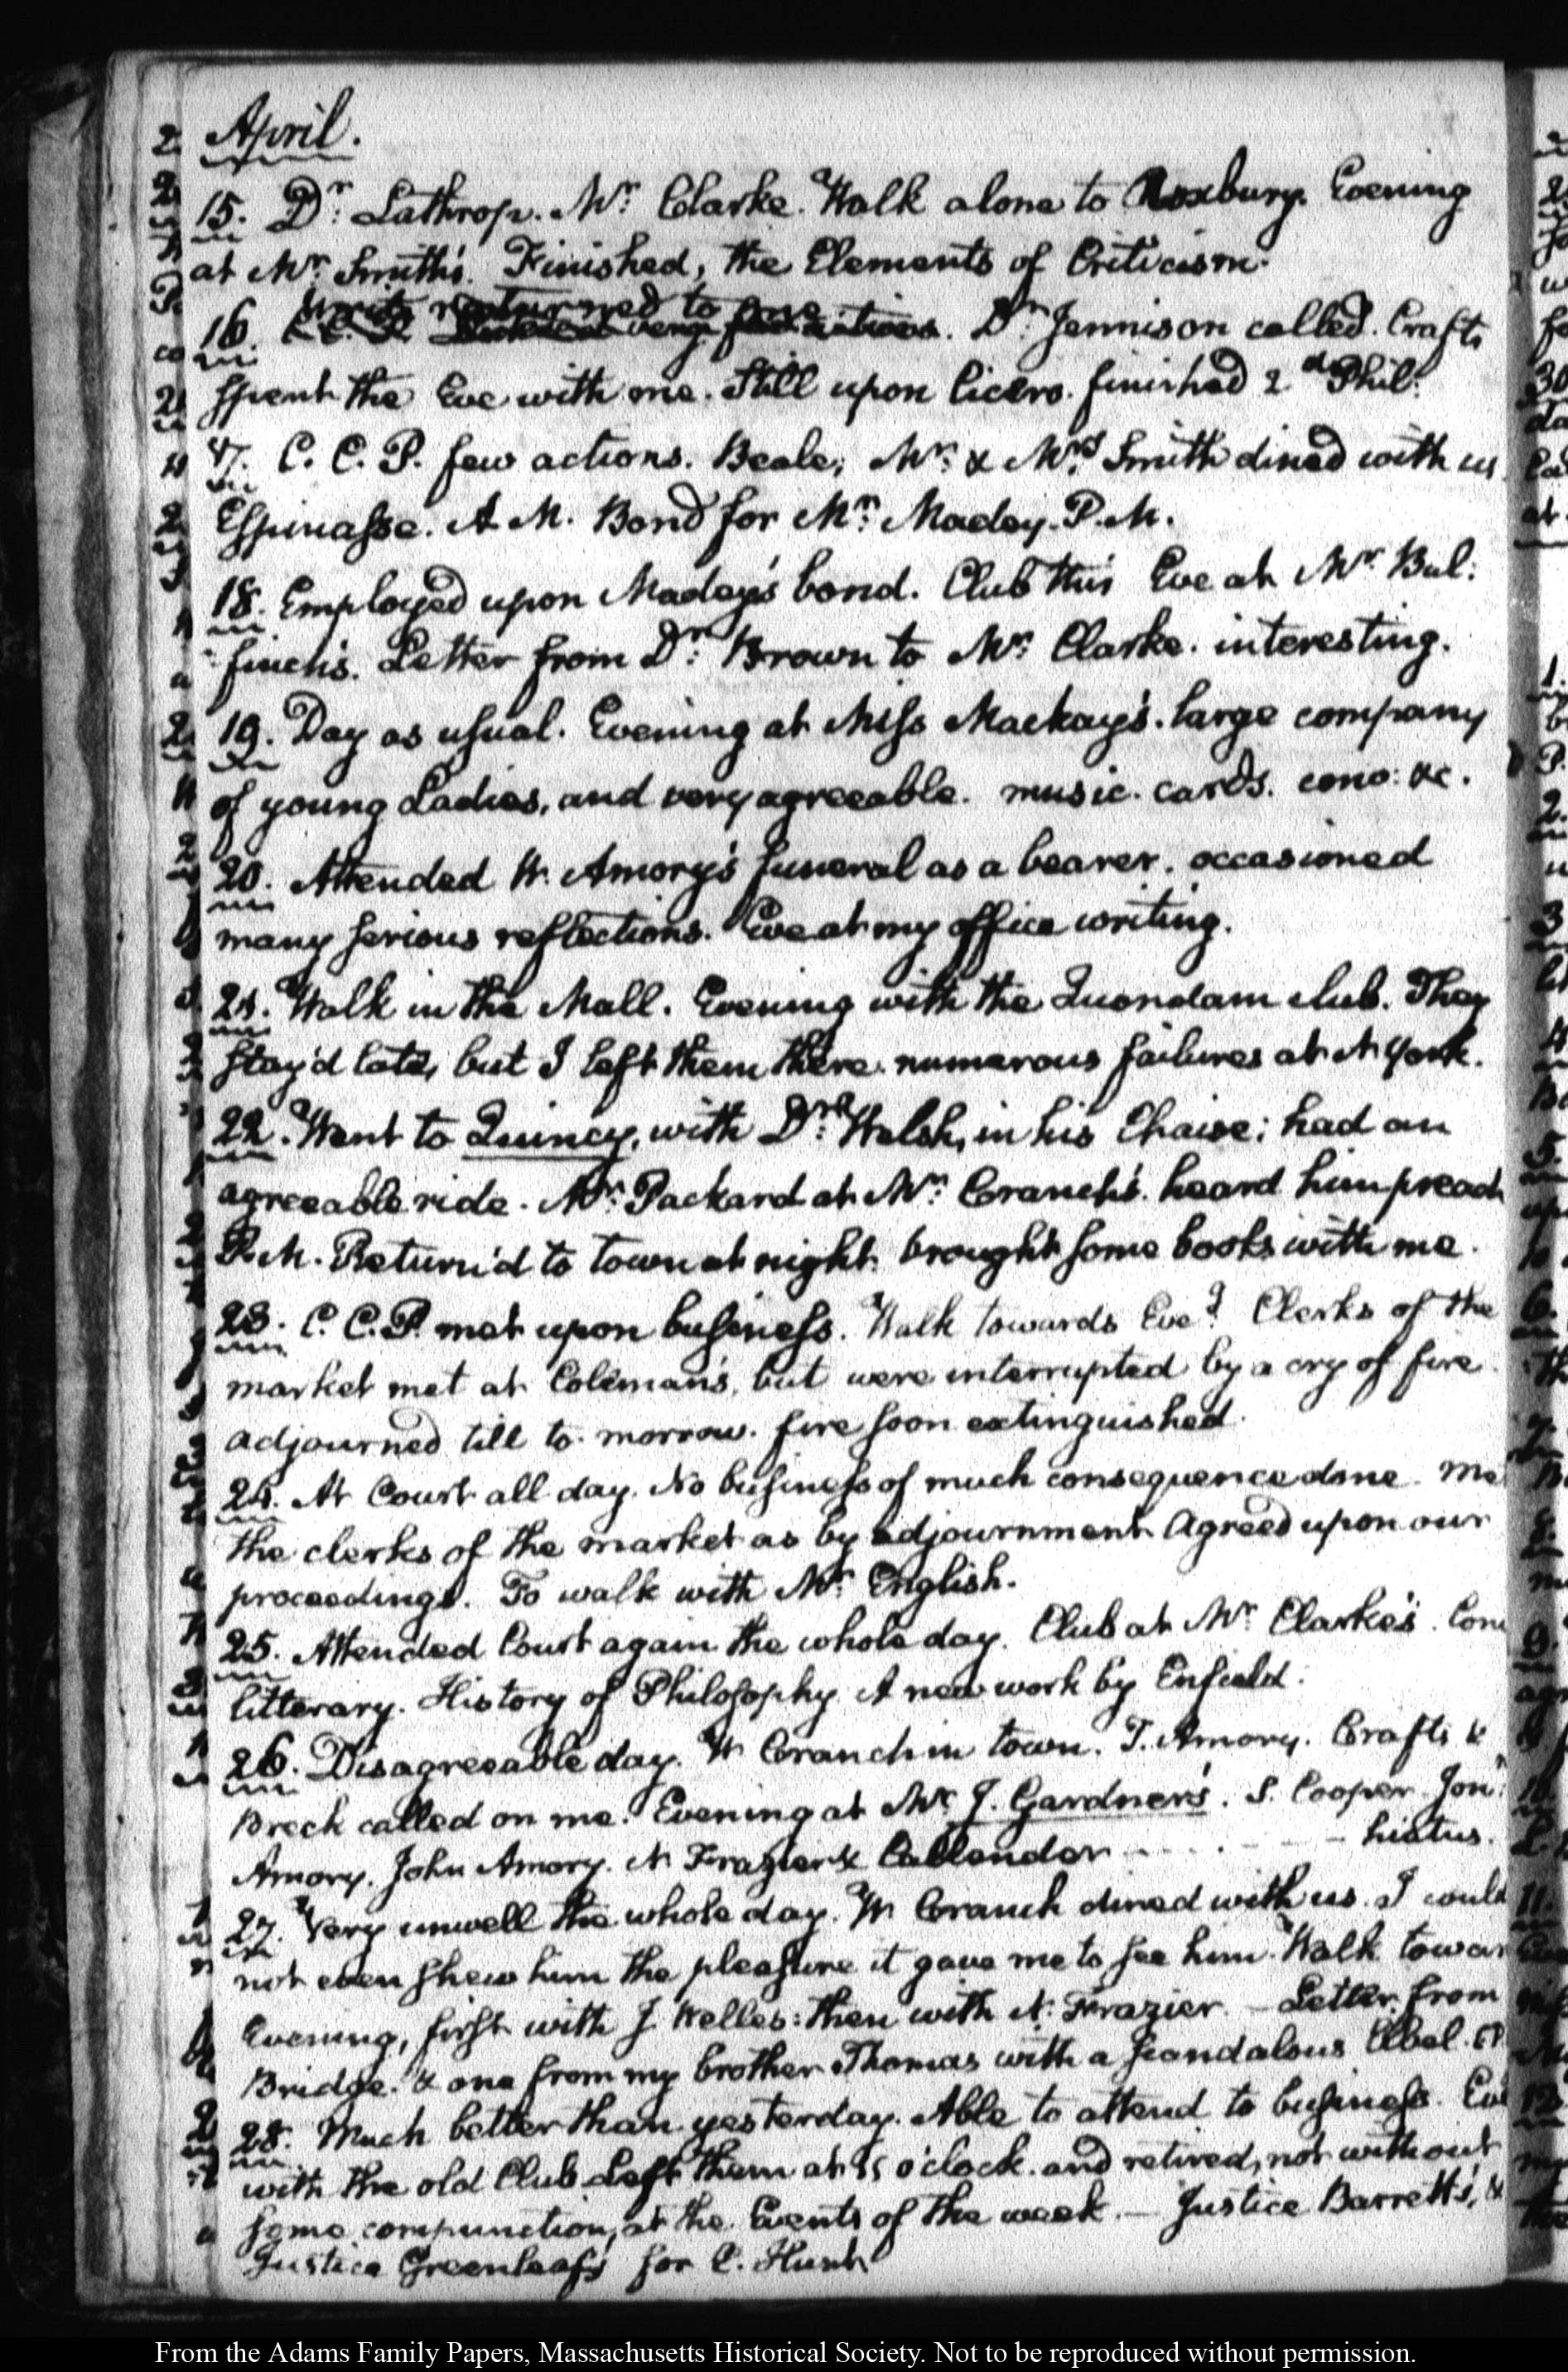 April.
15. Dr: Lathrop. Mr: Clarke. Walk alone to Roxbury. Evening
at Mr: Smith's. Finished, the Elements of Criticism.
16. Writs returned to Dr: Jennison called. Crafts
spent the Eve with me. Still upon Cicero. finished 2d Phil:
17. C. C. P. few actions. Beale, Mr: & Mrs: Smith dined with us
Espinasse. A M. Bond for Mr: Madey. P. M.
18. Employed upon Madey's bond. Club this Eve at Mr: Bul:
finch's. Letter from Dr: Brown to Mr: Clarke. interesting.
19. Day as usual. Evening at Miss Mackay's. large company
of young Ladies, and very agreeable. music. cards. conv: &c.
20. Attended W. Amory's funeral as a bearer. occasioned
many serious reflections. Eve at my office writing.
21. Walk in the Mall. Evening with the Quondam club. They
stay'd late, but I left them there. numerous failures at N York.
22. Went to Quincy, with Dr: Welsh, in his Chaise; had an
agreeable ride. Mr: Packard at Mr: Cranch's. heard him preach
P. M. Return'd to town at night. brought some books with me.
23. C. C. P. met upon business. Walk towards Eveg Clerks of the
market met at Coleman's, but were interrupted by a cry of fire.
adjourned till to-morrow. fire soon extinguished.
24. At Court all day. No business of much consequence done. Me
the clerks of the market as by adjournment. Agreed upon our
proceedings. To walk with Mr: English.
25. Attended Court again the whole day. Club at Mr: Clarke's. Con
litterary. History of Philosophy. A new work by Enfield.
26. Disagreeable day. W Cranch in town. T. Amory. Crafts &
Breck called on me. Evening at Mr: J. Gardner's. S. Cooper. Jon:
Amory. John Amory. N Frazier & Callendar - - - - hiatus.
27. Very unwell the whole day. W Cranch dined with us. I could
not even shew him the pleasure it gave me to see him. Walk towar
Evening, first with J Welles: then with N: Frazier. — Letter from
Bridge. & one from my brother Thomas with a scandalous libel.
28. Much better than yesterday. Able to attend to business. Eve
with the old Club. Left them at o'clock. and retired, not without
some compunction, at the Events of the week. — Justice Barrett's, &
Justice Greenleaf's for
From the Adams Family Papers, Massachusetts Historical Society. Not to be reproduced without permission.